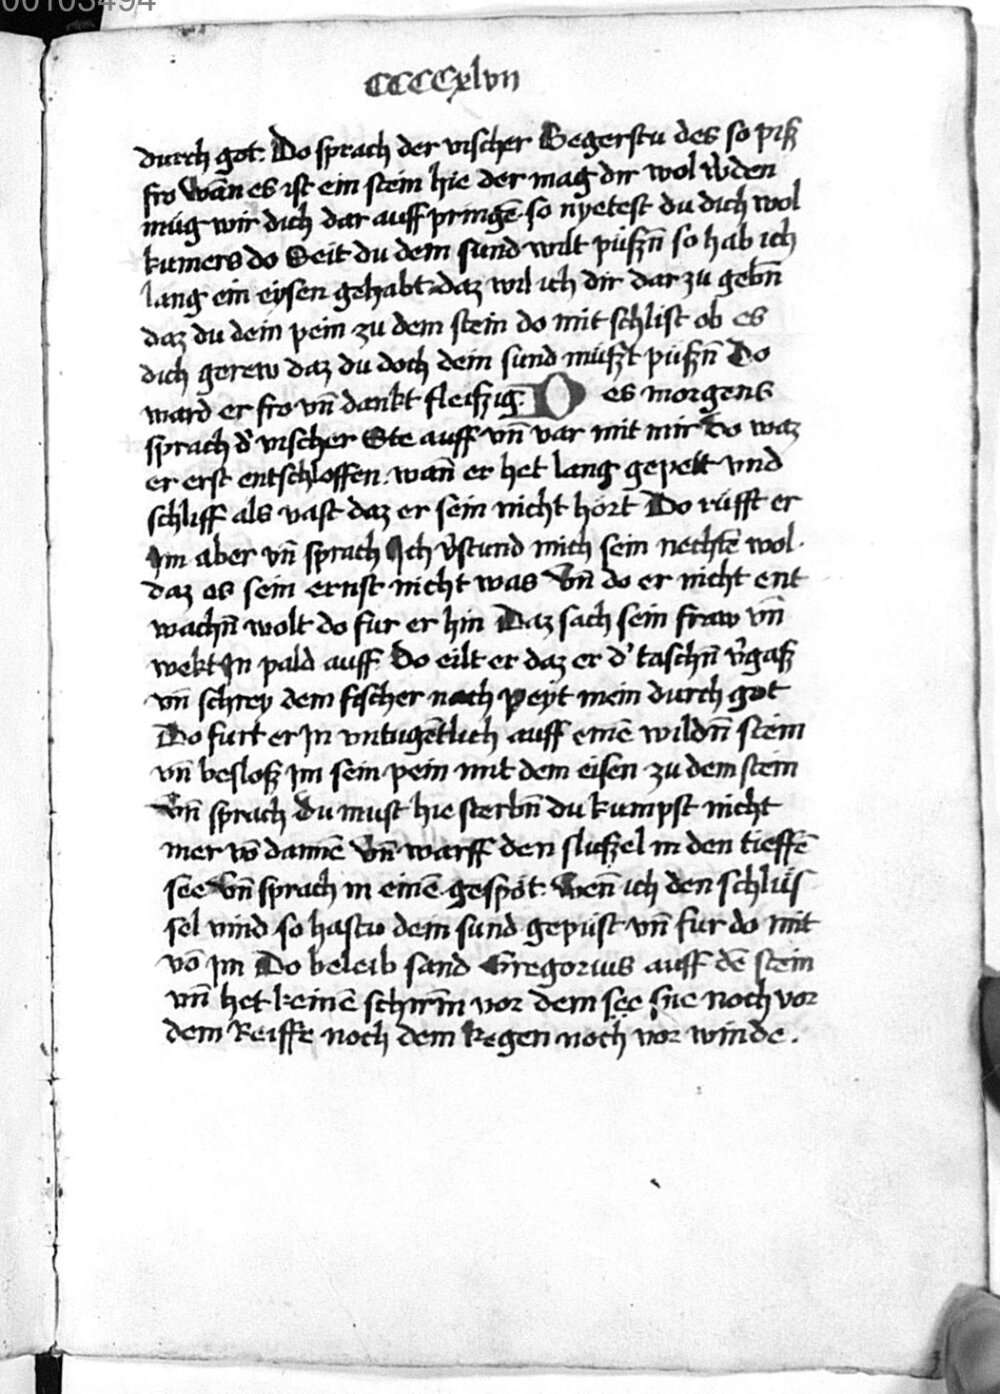 00103494
CCCCxlvii
durch got: Do sprach der vischer Begerstu des so piß
fro wan̄ es ist ein stein hie der mag dir wol w̉den
müg wir dich dar auff pringē so nyetest du dich wol
kumers do Seit du dem sund wilt püßn̄ so hab ich
lang ein eysen gehabt daz wil ich dir dar zu gebn̄
daz du dein pein zu dem stein do mit schlist ob es
dich gerew daz du doch dein sund müßt püßn̄ Do
ward er fro vn̄ dankt fleißig. Des morgens
sprach d̉ vischer Ste auff vn̄ var mit mir do waz
er erst entschloffen. wan̄ er het lang gepett vnd
schliff als vast daz er sein nicht hört Do rüfft er
Im aber vn̄ sprach Ich v̉stund mich sein nechtē wol.
daz es sein ernst nicht was Vn̄ do er nicht ent
wachn̄ wolt do fur er hin Daz sach sein fraw vn̄
wekt In pald auff. Do eilt er daz er d̉ taschn̄ v̉gaß
vn̄ schrey dem fischer nach peyt mein durch got
Do furt er In vntugētlich auff einē wildn̄ stein
vn̄ besloß im sein pein mit dem eisen zu dem stein
Vn̄ sprach du must hie sterbn̄ du kumpst nicht
mer vō dannē Vn̄ warff den slußel in den tieffē
see Vn̄ sprach in einē gespöt: Wen̄ ich den schlüs
sel vind so hastu dein sund gepüst vn̄ fur do mit
vō im Do beleib sand Gregorius auff dē stein
vn̄ het keinē schirm vor dem see sne noch vor
dem Reiffe noch dem Regen noch vor winde.